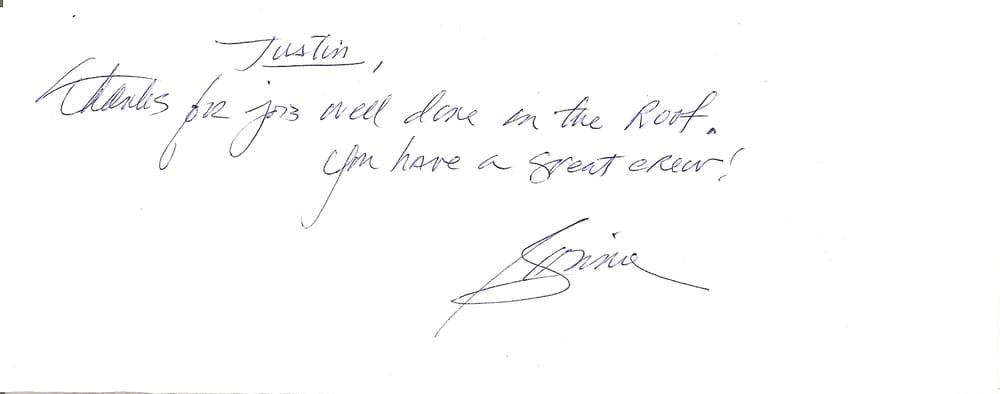 Justin,
Thanks for job well done on the Roof.
you have a great crew!